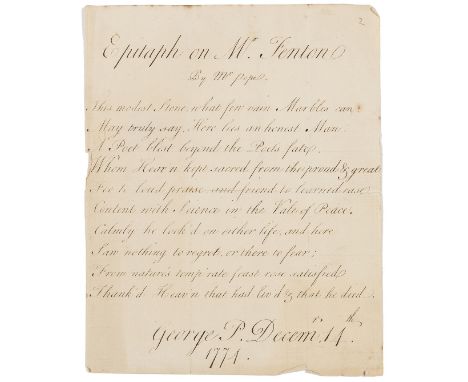 2
Epitaph on Mr. Fenton
By Mr Pope.
This modest Stone, what few vain Marbles can
May truly say, Here lies an honest Man:
A Poet blest beyond the Poets fate,
Whom Heav'n kept sacred from the proud & great
Foe to loud praise and friend to learned ease
Content with Science in the Vale of Peace.
Calmly he look'd on either life, and here
Saw nothing to regret, or there to fear;
From nature's temp'rate feast rose satisfied
Thank'd Heav'n that had liv'd & that he died.
George P. Decemr. 14th.
1774.